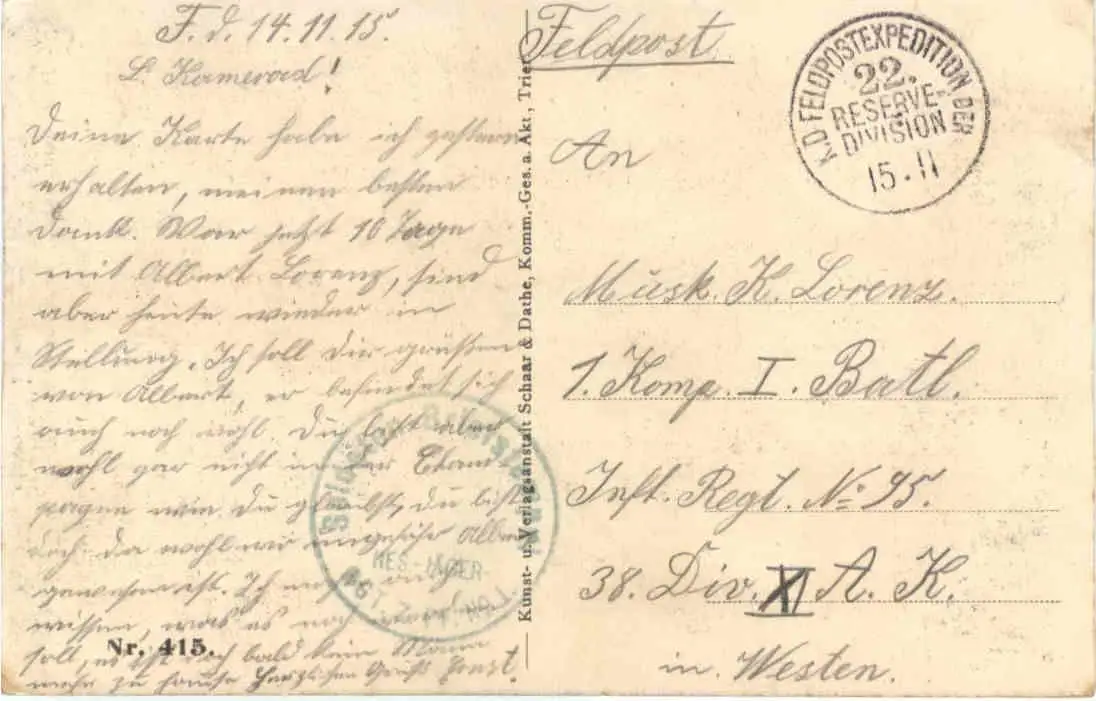 F. d. 14.11.15.
L. Kamerad!
Deine Karte habe ich gestern
erhalten, meinen besten
Dank. War jetzt 10 Tage
mit Albert Lorenz, sind
aber heute wieder in
Stellung. Ich soll Dir grüßen
von Albert, er befindet sich
auch noch wohl. Du bist aber
wohl gar nicht in der Cham-
pagne wie Du glaubst, Du bist
doch da wohl wo ungefähr Albert
gewesen ist. Ich
wissen, was es noch
soll, es ist doch bald kein Mann
mehr zu Hause Herzlichen Gruß Ernst.
Nr. 415.
RES.-JÄGER-
Kunst- u. Verlagsanstalt Schaar & Dathe, Komm.-Ges. a. Akt., Trier
Feldpost
K.D. FELDPOSTEXPEDITION DER
22.
RESERVE-
DIVISION
15.11
An
Musk. K. Lorenz.
1. Komp. I. Batl.
Inft. Regt. No 95.
38. Div. XI A. K.
in Westen.